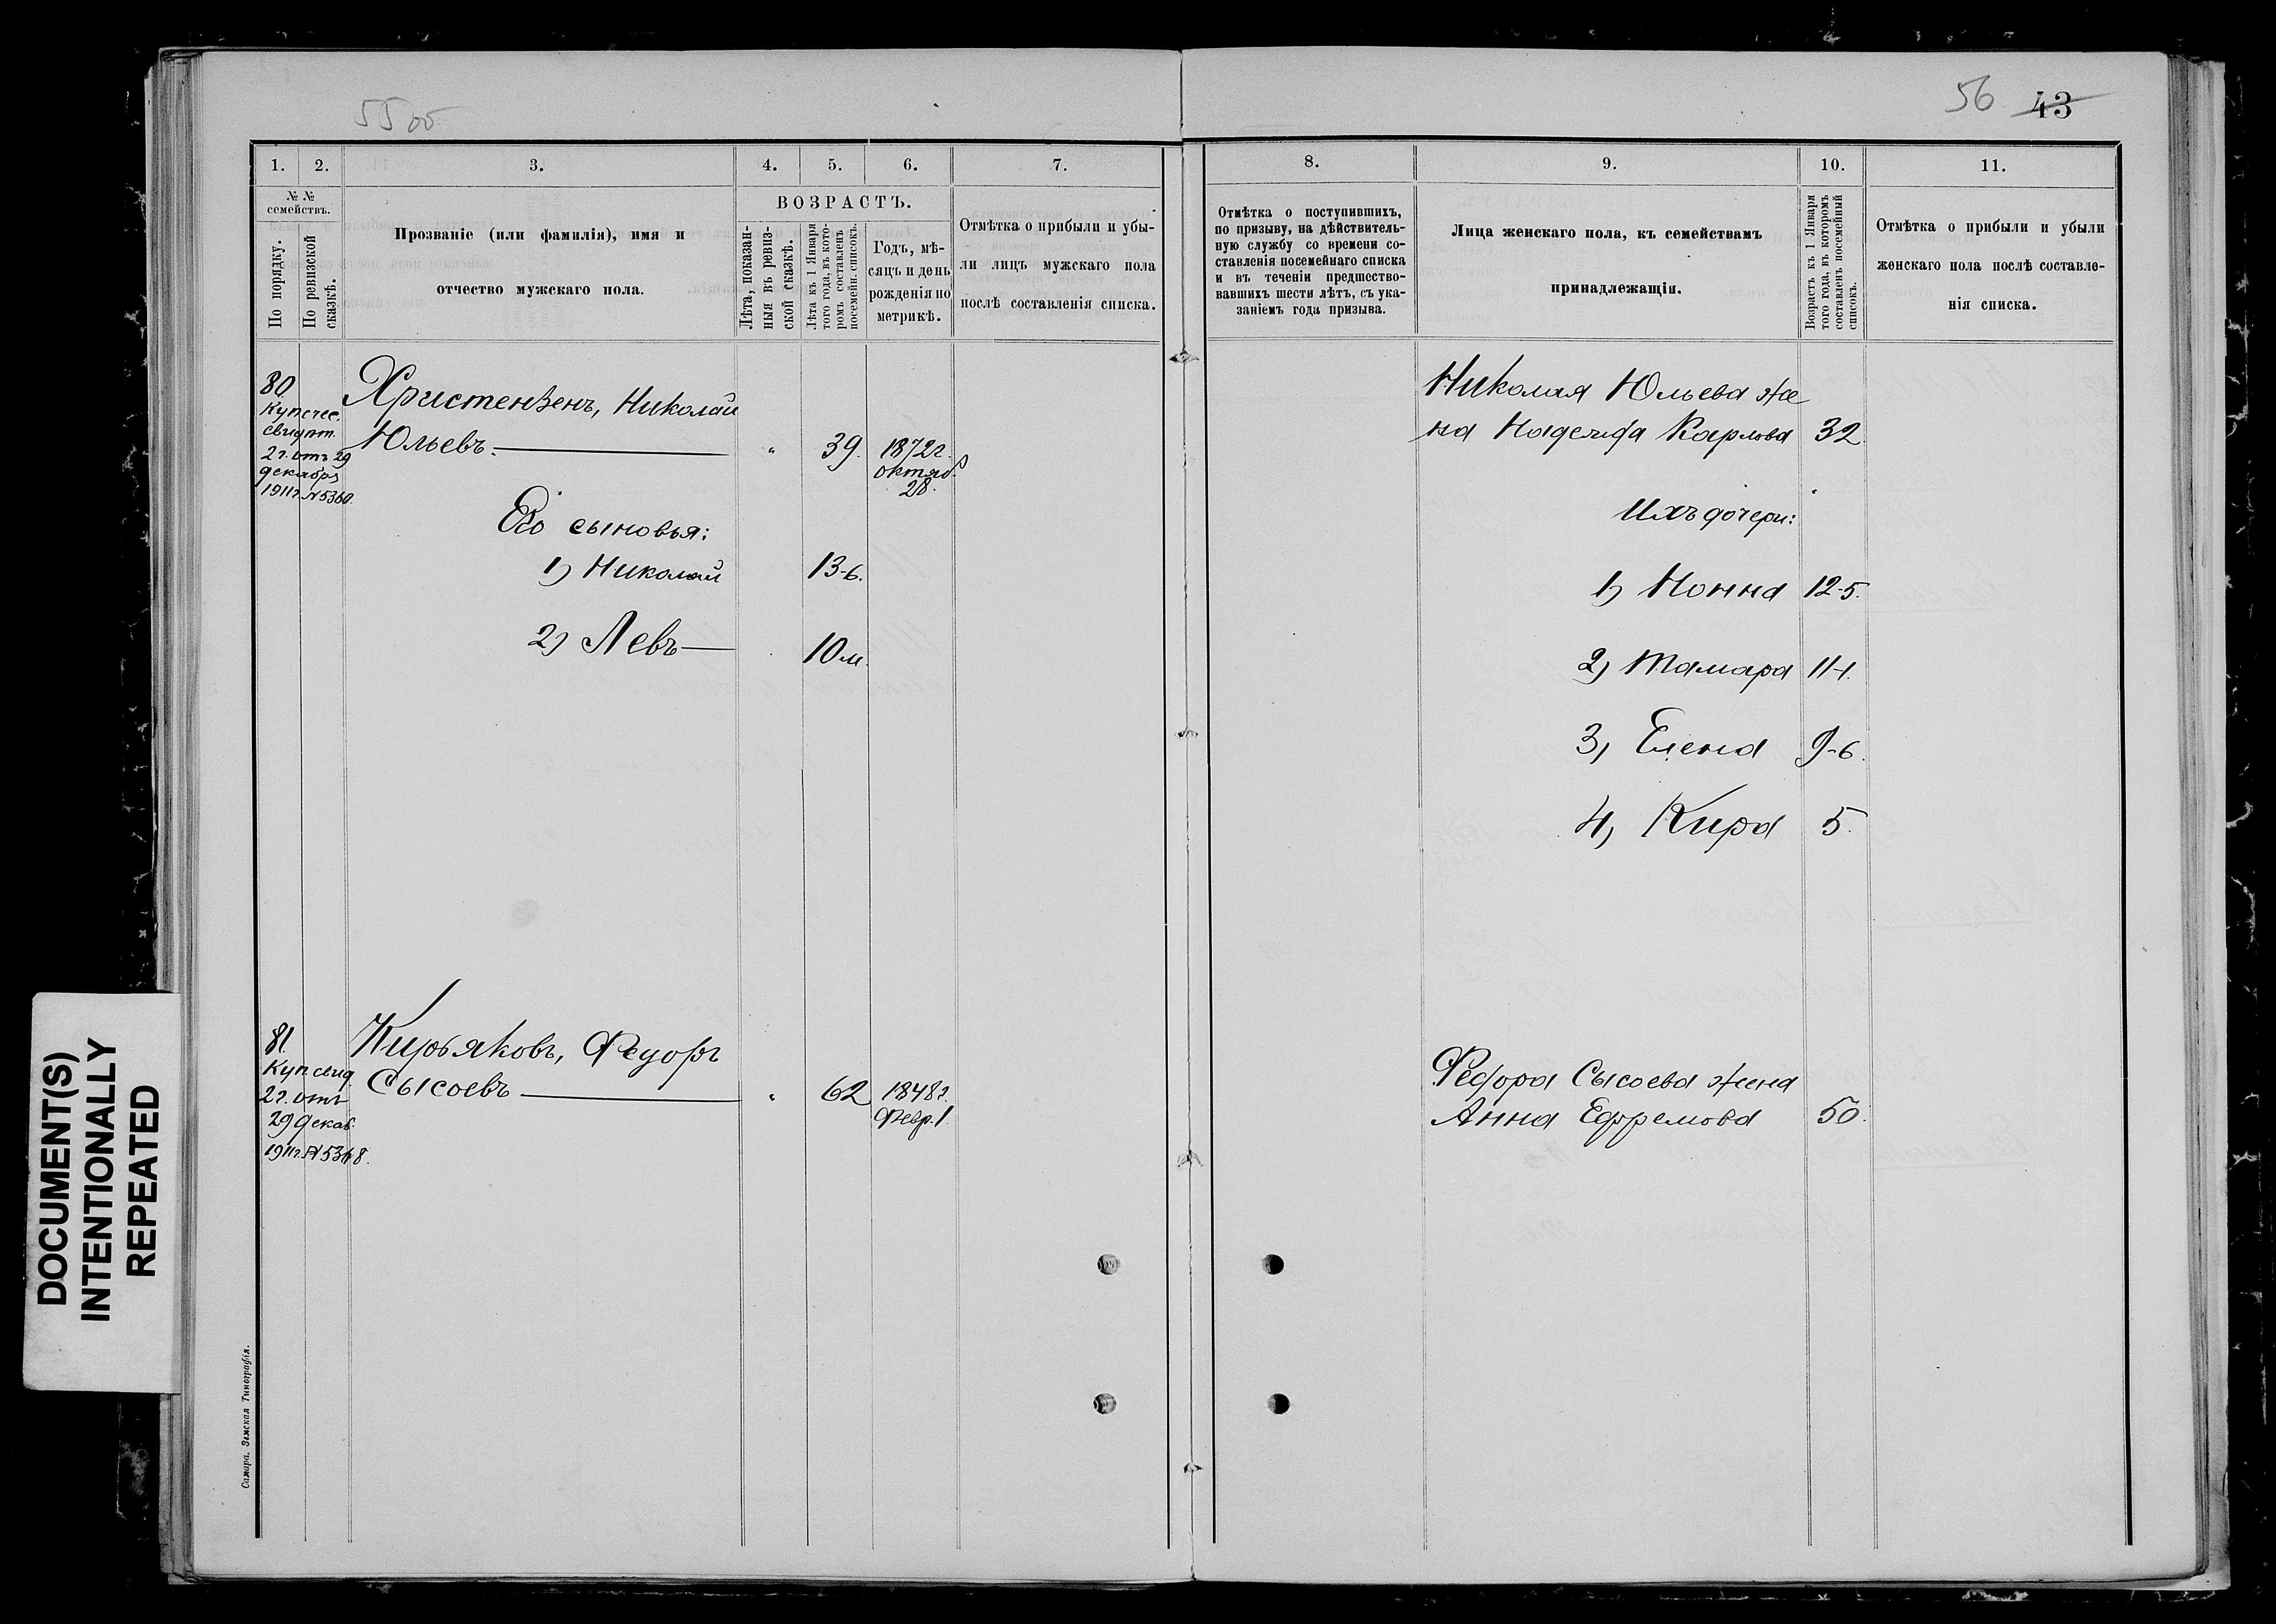 55 об
1.
2.
3.
4.
5.
6.
7.
№ №
семействъ.
По порядку.
По ревизской
сказкѣ.
Прозваніе (или фамилія), имя и
отчество мужскаго пола.
ВОЗРАСТЪ.
Лѣта, показан-
ныя въ ревиз-
ской сказкѣ.
Лѣта къ 1 Января
того года, въ кото-
ромъ составленъ
посемейн. списокъ.
Годъ, мѣ-
сяцъ и день
рожденія по
метрикѣ.
Отмѣтка о прибыли и убы-
ли лицъ мужскаго пола
послѣ составленія списка.
80.
Купечес.
свидѣт.
2 г. отъ 29
декабря
1911 г. № 5360.
Христензенъ, Николай
Юльевъ. — " 39. 1872 г.
октяб.
28.
Его сыновья:
1) Николай 13-6.
2) Левъ — 10 м.
81.
Куп. свид.
2 г. отъ
29 декаб.
1911 г. № 5368.
Кирьяковъ, Федоръ
Сысоевъ — " 62 1848 г.
Февр. 1.
Самара. Земская Типографія.
DOCUMENT(S)
INTENTIONALLY
REPEATED
56 43
8.
9.
10.
11.
Отмѣтка о поступившихъ,
по призыву, на дѣйствитель-
ную службу со времени со-
ставленія посемейнаго списка
и въ теченіи предшество-
вавшихъ шести лѣтъ, съ ука-
заніемъ года призыва.
Лица женскаго пола, къ семействамъ
принадлежащія.
Возрастъ къ 1 Января
того года, въ которомъ
составленъ посемейный
списокъ.
Отмѣтка о прибыли и убыли
женскаго пола послѣ составле-
нія списка.
Николая Юльева же
на Надежда Карлова 32
Ихъ дочери:
1) Нонна 12-5.
2) Тамара 11-1.
3) Елена 9-6.
4) Кира 5.
Федора Сысоева жена
Анна Ефремова 50.